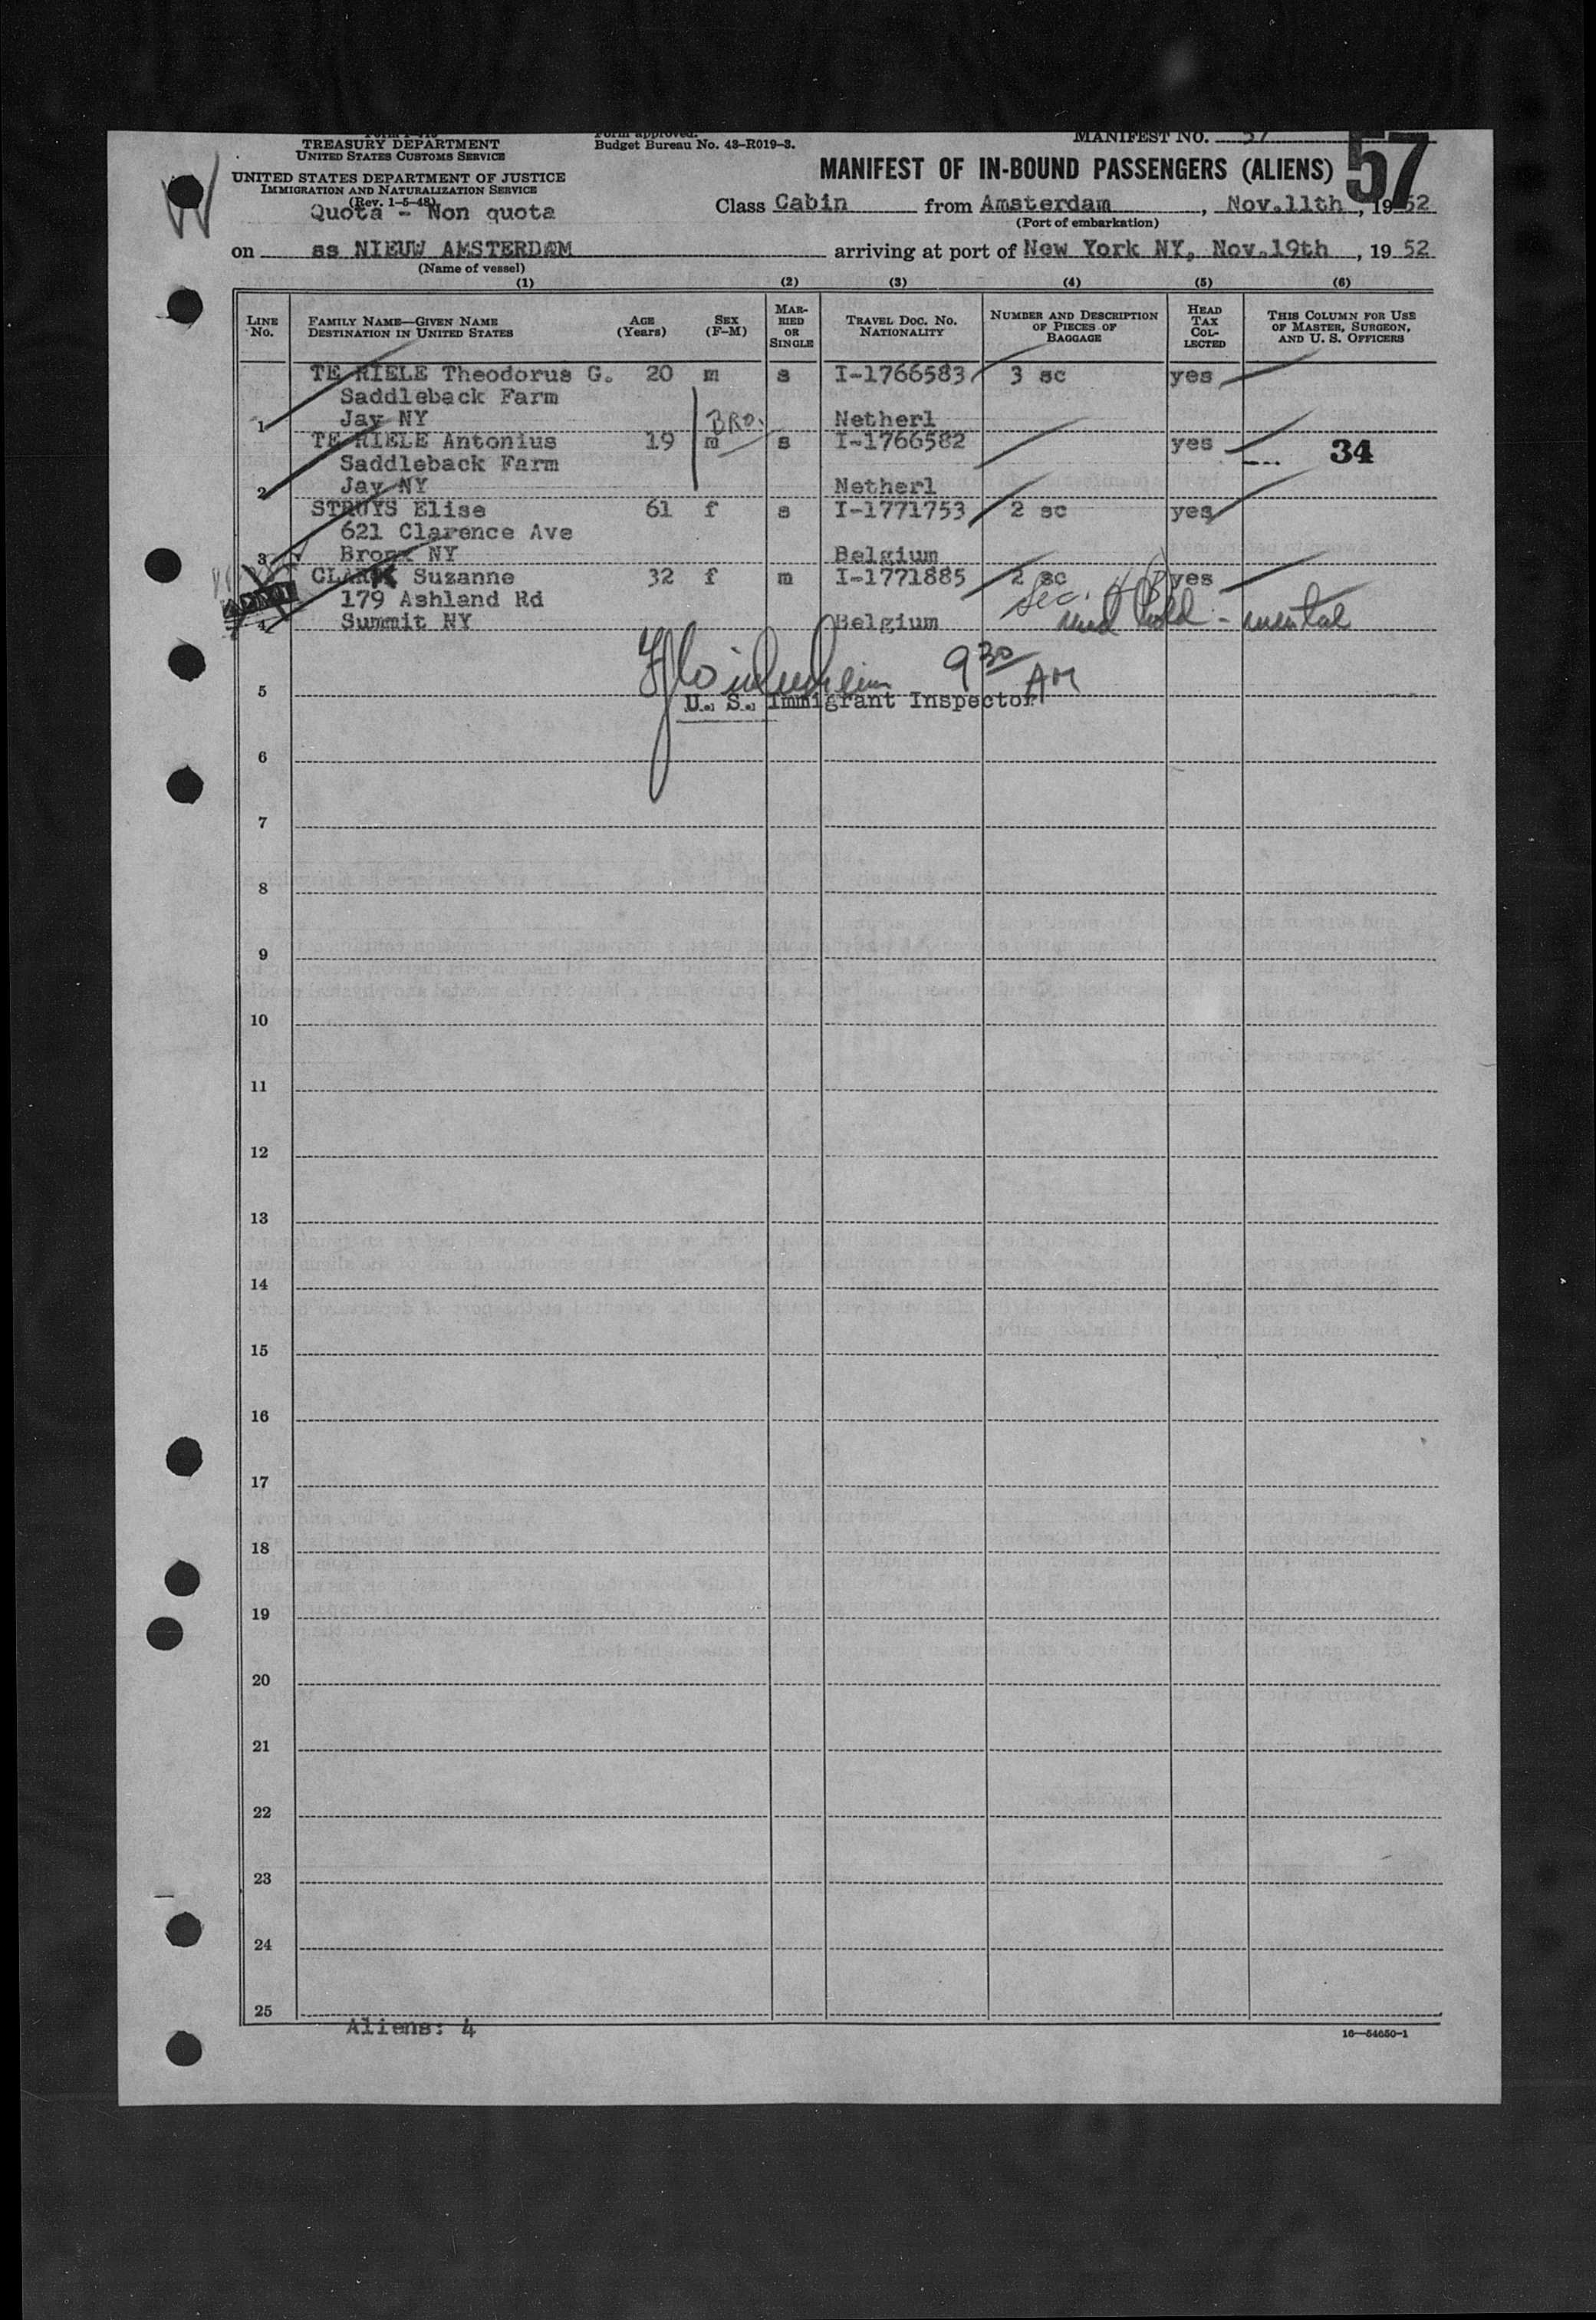 TREASURY DEPARTMENT
UNITED STATES CUSTOMS SERVICE
Form approved.
Budget Bureau No. 43-R019-3.
MANIFEST NO. 57
57
UNITED STATES DEPARTMENT OF JUSTICE
IMMIGRATION AND NATURALIZATION SERVICE
(Rev. 1-5-48)
MANIFEST OF IN-BOUND PASSENGERS (ALIENS)
Quota - Non quota
Class Cabin from Amsterdam, Nov.11th, 1952
(Port of embarkation)
on ss NIEUW AMSTERDAM arriving at port of New York NY, Nov.19th, 1952
(Name of vessel)
(1) (2) (3) (4) (5) (6)
LINE No. FAMILY NAME—GIVEN NAME DESTINATION IN UNITED STATES AGE (Years) SEX (F-M) MARRIED OR SINGLE TRAVEL DOC. NO. NATIONALITY NUMBER AND DESCRIPTION OF PIECES OF BAGGAGE HEAD TAX COLLECTED THIS COLUMN FOR USE OF MASTER, SURGEON, AND U. S. OFFICERS
TE RIELE Theodorus G. 20 m s I-1766583 3 sc yes
Saddleback Farm
1 Jay NY BRO. Netherl
TE RIELE Antonius 19 m s I-1766582 yes 34
Saddleback Farm
2 Jay NY Netherl
STRUYS Elise 61 f s I-1771753 2 sc yes
621 Clarence Ave
3 Bronx NY Belgium
CLARK Suzanne 32 f m I-1771885 2 sc yes
179 Ashland Rd Sec.
4 Summit NY Belgium med hold - mental
9 30 AM
5
U. S. Immigrant Inspector
6
7
8
9
10
11
12
13
14
15
16
17
18
19
20
21
22
23
24
25
Aliens: 4
16—54650-1